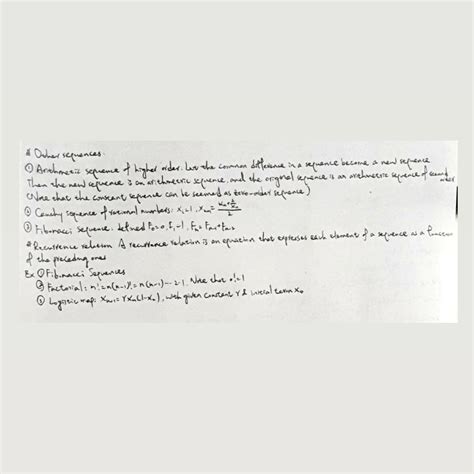 # Other sequences.
① Arithmetic sequence of higher order. Let the common difference in a sequence become a new sequence
Then the new sequence is an arithmetic sequence, and the original sequence is an arithmetic sequence of second order
(Note that the constant sequence can be seemed as zero-order sequence)
② Cauchy sequence of rational numbers: X₁=1, Xₙ₊₁ = (Xₙ + 2/Xₙ)/2
③ Fibonacci sequence: defined F₀=0, F₁=1, Fₙ = Fₙ₋₁+Fₙ₋₂
# Recurrence relation A recurrence relation is an equation that expresses each element of a sequence as a function
of the preceding ones
Ex ① Fibonacci Sequences
② Factorial: n! = n(n-1)! = n(n-1)⋯2·1. Note that 0!=1
③ Logistic map: Xₙ₊₁ = rXₙ(1-Xₙ), with given constant r & initial term X₀